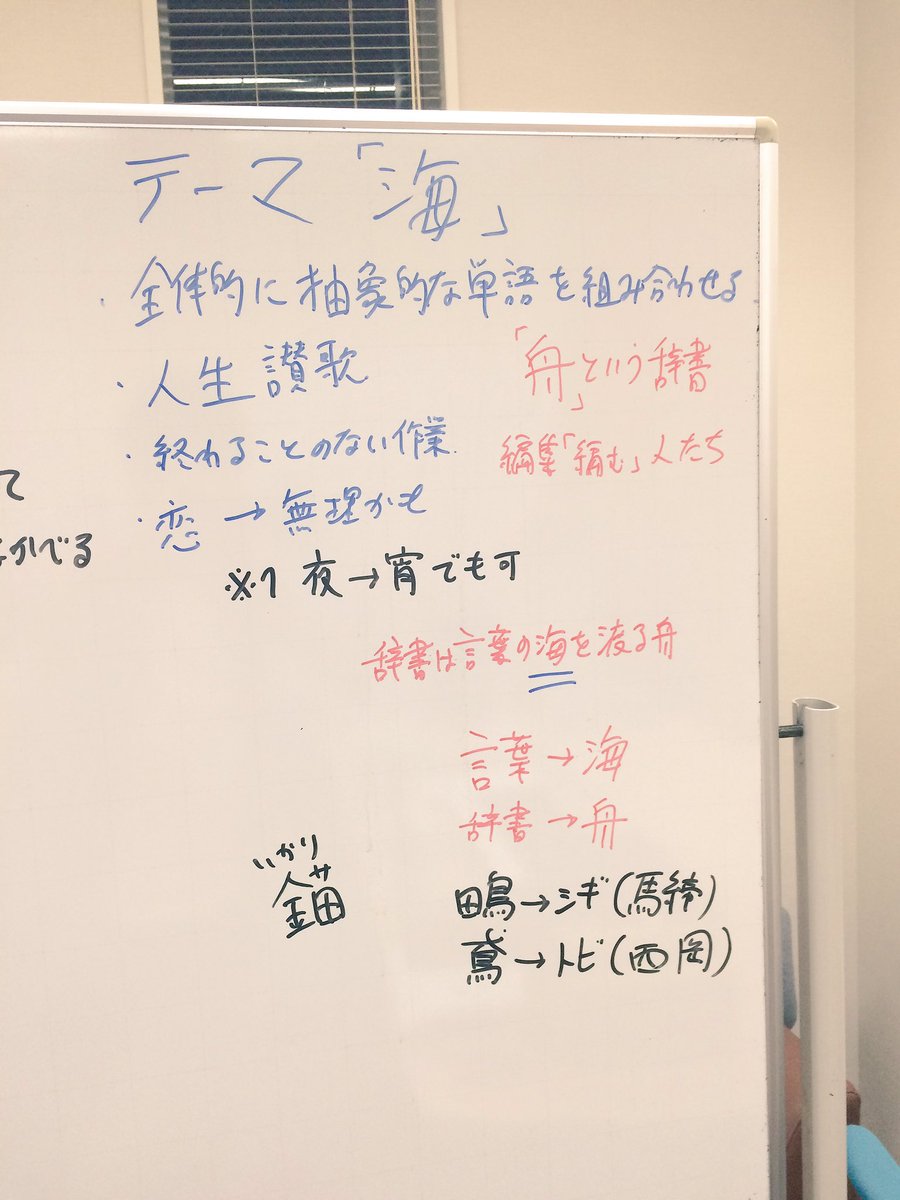 テーマ「海」
・全体的に抽象的な単語を組み合わせる
・人生讃歌
「舟」という辞書
・終わることのない作業
編集「編む」人たち
て
・恋→無理かも
かべる
※1 夜→宵でも可
辞書は言葉の海を渡る舟
言葉→海
辞書→舟
いかり
錨
鴫→シギ(馬締)
鳶→トビ(西岡)